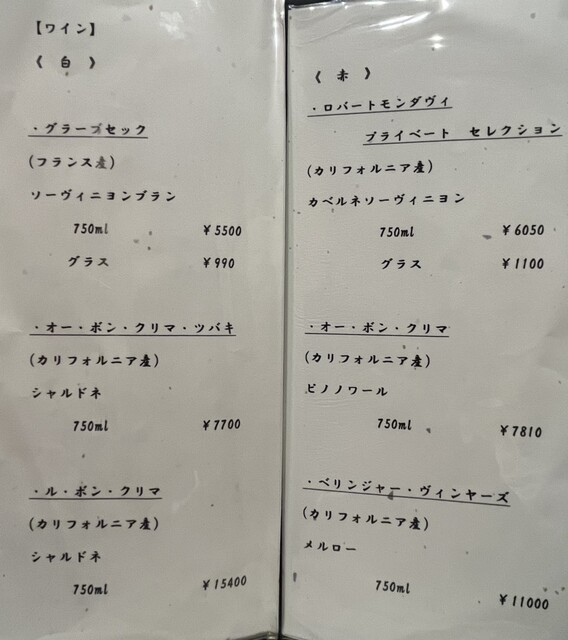 【ワイン】
《 白 》
・グラーブセック
(フランス産)
ソーヴィニヨンブラン
750ml ￥5500
グラス ￥990
・オー・ボン・クリマ・ツバキ
(カリフォルニア産)
シャルドネ
750ml ￥7700
・ル・ボン・クリマ
(カリフォルニア産)
シャルドネ
750ml ￥15400
《 赤 》
・ロバートモンダヴィ
プライベート セレクション
(カリフォルニア産)
カベルネソーヴィニヨン
750ml ￥6050
グラス ￥1100
・オー・ボン・クリマ
(カリフォルニア産)
ピノノワール
750ml ￥7810
・ベリンジャー・ヴィンヤーズ
(カリフォルニア産)
メルロー
750ml ￥11000